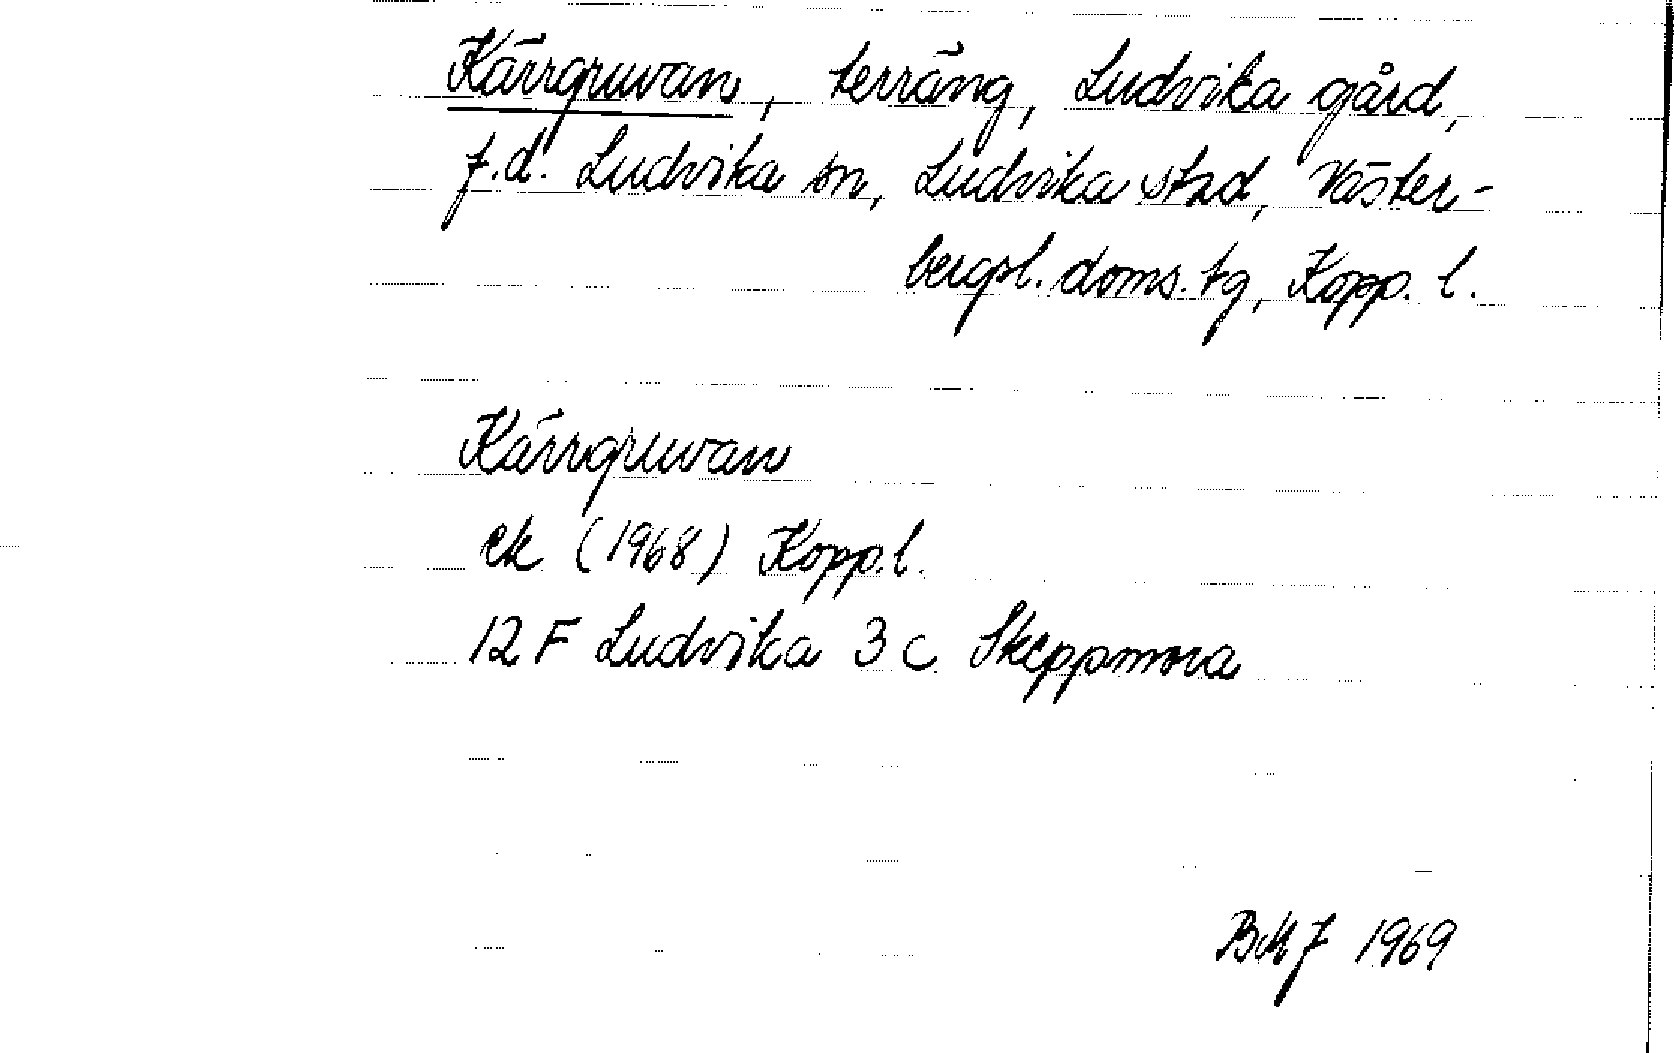 Kärrgruvan, terräng, Ludvika gård,
f.d. Ludvika sn, Ludvika stad, Väster-
bergsl. doms. tg, Kopp. l.
Kärrgruvan
ek (1968) Kopp. l.
12 F Ludvika 3 c Skeppmora
BMJ 1969